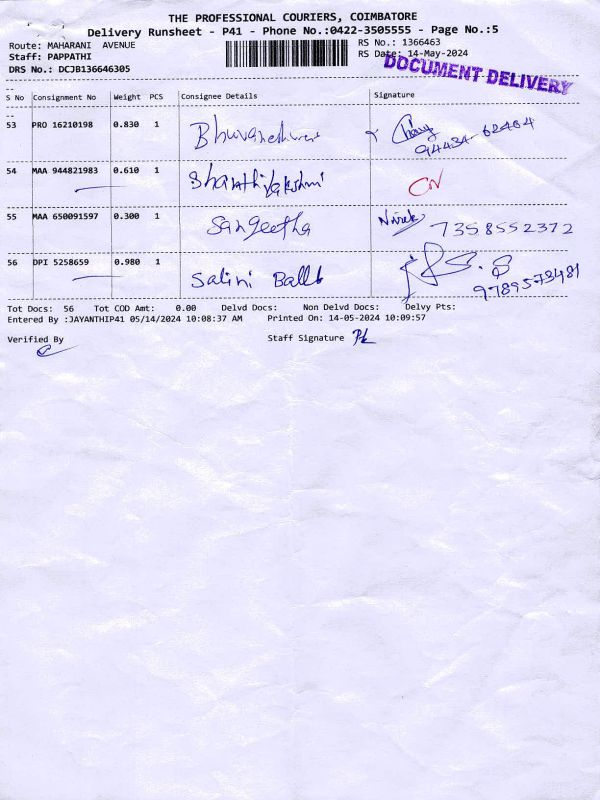 THE PROFESSIONAL COURIERS, COIMBATORE
Delivery Runsheet - P41 - Phone No.:0422-3505555 - Page No.:5
Route: MAHARANI AVENUE
RS No.: 1366463
Staff: PAPPATHI
RS Date: 14-May-2024
DRS No.: DCJB136646305
DOCUMENT DELIVERY
S No Consignment No Weight PCS Consignee Details Signature
53 PRO 16210198 0.830 1 94434-62464
54 MAA 944821983 0.610 1 Bharathilakshmi CN
55 MAA 650091597 0.300 1 Sangeetha 7358552372
56 DPI 5258659 0.980 1 Salini 9789573481
Tot Docs: 56 Tot COD Amt: 0.00 Delvd Docs: Non Delvd Docs: Delvy Pts:
Entered By :JAYANTHIP41 05/14/2024 10:08:37 AM Printed On: 14-05-2024 10:09:57
Verified By Staff Signature